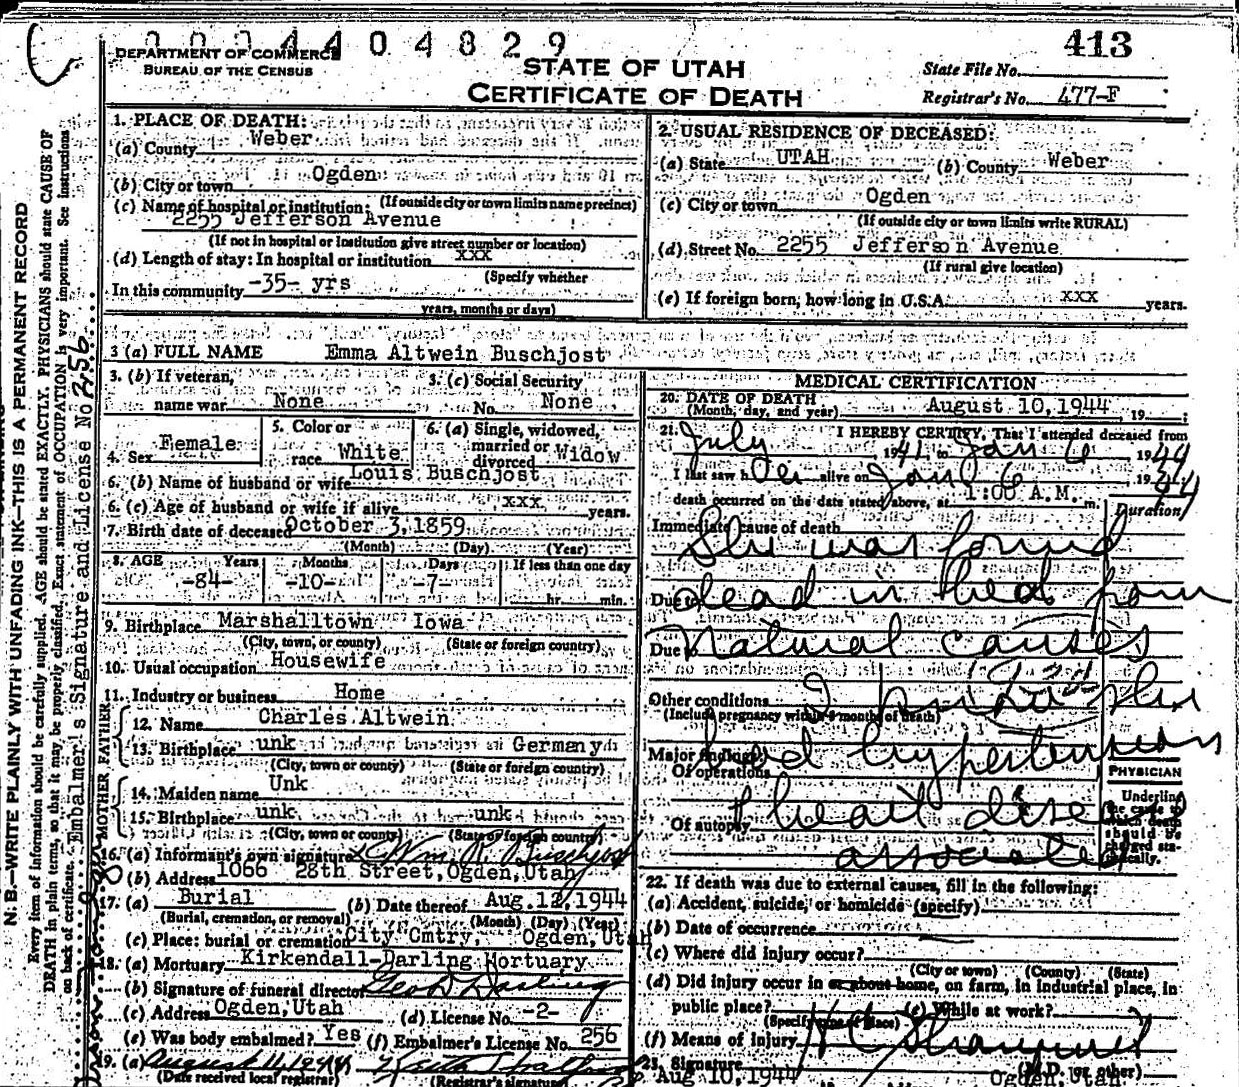 0 0 3 4 4 0 4 8 2 9
413
DEPARTMENT OF COMMERCE
BUREAU OF THE CENSUS
STATE OF UTAH
CERTIFICATE OF DEATH
State File No.
Registrar's No. 477-F
N. B.—WRITE PLAINLY WITH UNFADING INK—THIS IS A PERMANENT RECORD
Every item of information should be carefully supplied. AGE should be stated EXACTLY. PHYSICIANS should state CAUSE OF
DEATH in plain terms, so that it may be properly classified. Exact statement of OCCUPATION is very important. See instructions
on back of certificate. Embalmer's Signature and License No 256
1. PLACE OF DEATH:
(a) County Weber
(b) City or town Ogden
(c) Name of hospital or institution: (If outside city or town limits name precinct)
2255 Jefferson Avenue
(If not in hospital or Institution give street number or location)
(d) Length of stay: In hospital or institution xxx
(Specify whether
In this community -35- yrs
years, months or days)
2. USUAL RESIDENCE OF DECEASED:
(a) State UTAH (b) County Weber
(c) City or town Ogden
(If outside city or town limits write RURAL)
(d) Street No. 2255 Jefferson Avenue
(If rural give location)
(e) If foreign born, how long in U.S.A. xxx years.
3 (a) FULL NAME Emma Altwein Buschjost
3. (b) If veteran, name war None
3. (c) Social Security No. None
4. Sex Female
5. Color or race White
6. (a) Single, widowed, married or divorced Widow
6. (b) Name of husband or wife Louis Buschjost
6. (c) Age of husband or wife if alive xxx years.
7. Birth date of deceased October 3, 1859
(Month) (Day) (Year)
8. AGE Years Months Days If less than one day
-84- -10- -7- hr. min.
9. Birthplace Marshalltown Iowa
(City, town, or county) (State or foreign country)
10. Usual occupation Housewife
11. Industry or business Home
FATHER
12. Name Charles Altwein
13. Birthplace unk Germany
(City, town or county) (State or foreign country)
MOTHER
14. Maiden name Unk
15. Birthplace unk unk
(City, town or county) (State or foreign country)
16. (a) Informant's own signature Wm. R. Buschjost
(b) Address 1066 28th Street, Ogden, Utah
17. (a) Burial (b) Date thereof Aug. 12, 1944
(Burial, cremation, or removal) (Month) (Day) (Year)
(c) Place: burial or cremation City Cmtry, Ogden, Utah
18. (a) Mortuary Kirkendall-Darling Mortuary
(b) Signature of funeral director Geo D Darling
(c) Address Ogden, Utah (d) License No. -2-
(e) Was body embalmed? Yes (f) Embalmer's License No. 256
19. (a) August 11, 1944
(Date received local registrar) (Registrar's signature)
MEDICAL CERTIFICATION
20. DATE OF DEATH
(Month, day, and year) August 10, 1944 19
21. I HEREBY CERTIFY, That I attended deceased from
July 1941 to Jan 6 1944
I last saw her alive on Jan 6 1944
death occurred on the date stated above, at 1:00 A.M. m. Duration
Immediate cause of death
She was found
Due to dead in bed from
Due to Natural causes
Other conditions
(Include pregnancy within 3 months of death)
she
Major findings:
Of operations
had hypertension
Of autopsy heart disease
associated
PHYSICIAN
Underline the cause to which death should be charged statistically.
22. If death was due to external causes, fill in the following:
(a) Accident, suicide, or homicide (specify)
(b) Date of occurrence
(c) Where did injury occur?
(City or town) (County) (State)
(d) Did injury occur in or about home, on farm, in industrial place, in
public place? (e) While at work?
(Specify type of place)
(f) Means of injury
23. Signature
(M.D. or other)
Aug 10, 1944 Ogden, Utah